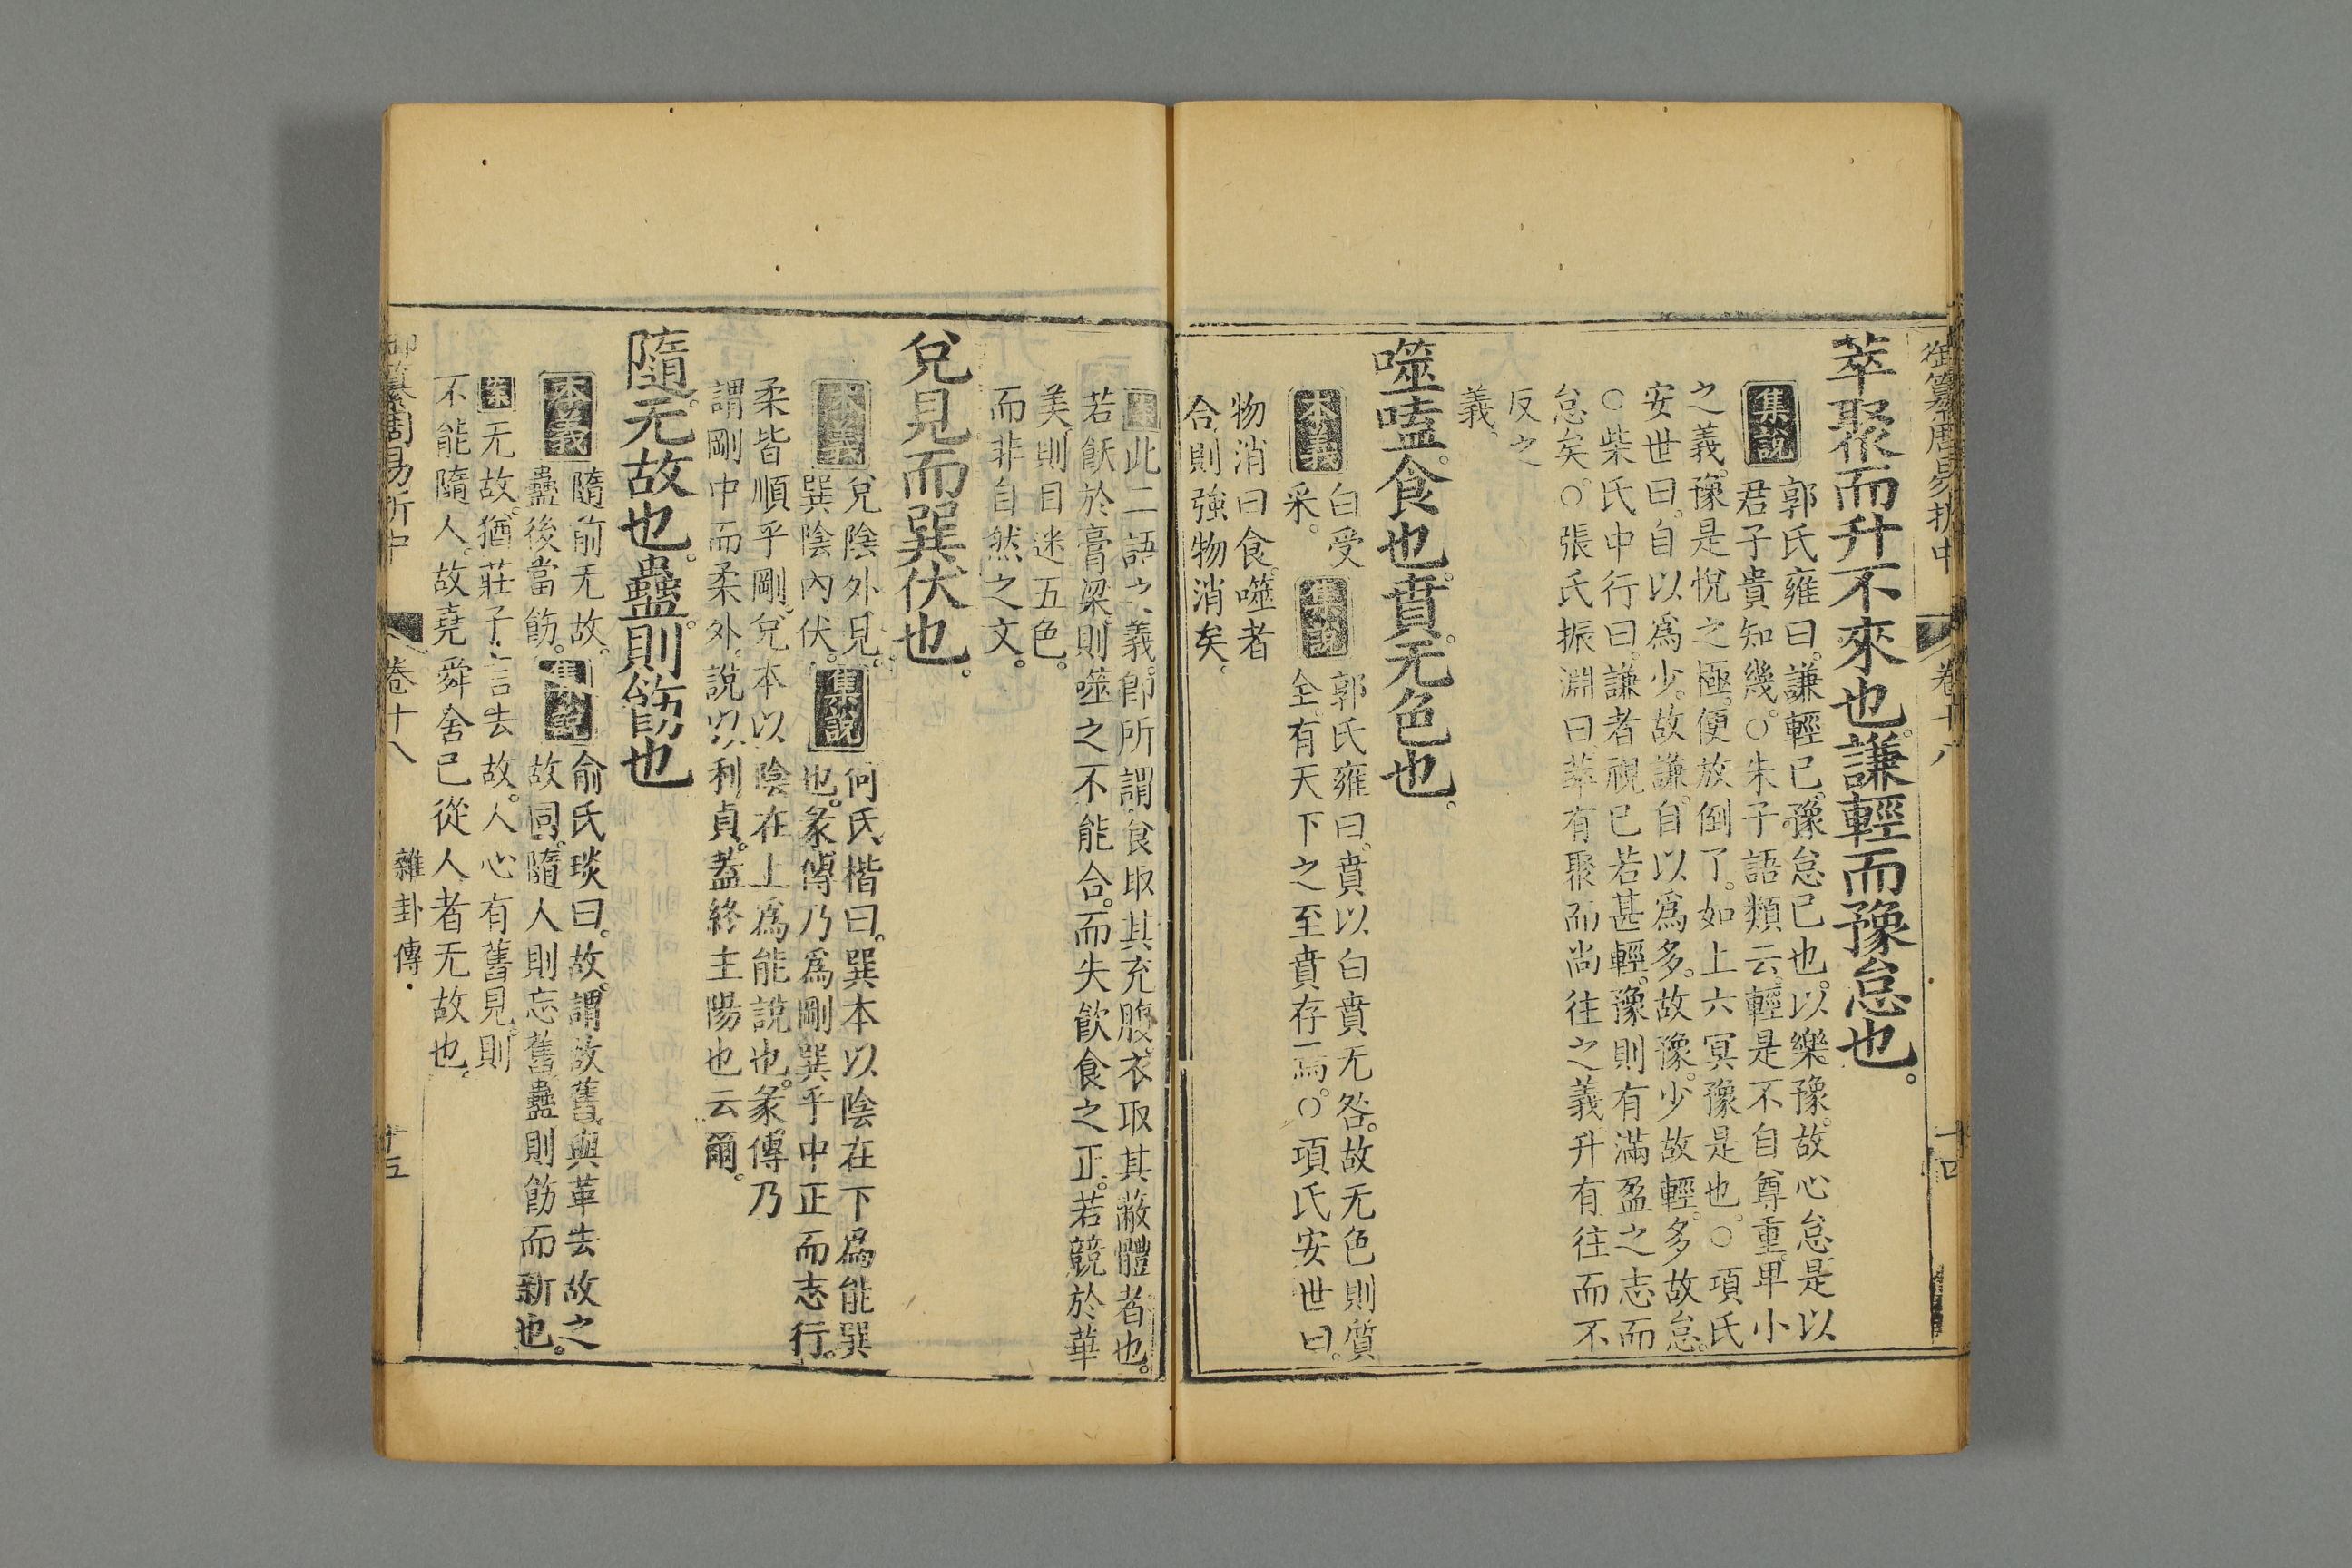 御纂周易折中 卷十八 十四
萃聚而升不來也。謙輕而豫怠也。
集說 郭氏雍曰。謙輕己。豫怠己也。以樂豫。故心怠。是以
君子貴知幾。○朱子語類云。輕是不自尊重。卑小
之義。豫是悅之極。便放倒了。如上六冥豫是也。○項氏
安世曰。自以爲少。故謙。自以爲多。故豫。少故輕。多故怠。
○柴氏中行曰。謙者視己若甚輕。豫則有滿盈之志而
怠矣。○張氏振淵曰。萃有聚而尚往之義。升有往而不
反之
義。
噬嗑。食也。賁。无色也。
本義 白受
采。
集說 郭氏雍曰。賁以白賁无咎。故无色則質
全。有天下之至賁存焉。○項氏安世曰。
物消曰食。噬者
合則強物消矣。
案 此二語之義。卽所謂食取其充腹。衣取其蔽體者也。
若飫於膏粱。則噬之不能合。而失飲食之正。若競於華
美。則目迷五色。
而非自然之文。
兌見而巽伏也。
本義 兌陰外見。
巽陰內伏。
集說 何氏楷曰。巽本以陰在下爲能巽
也。彖傳乃爲剛巽乎中正而志行。
柔皆順乎剛。兌本以陰在上爲能說也。彖傳乃
謂剛中而柔外。說以利貞。葢終主陽也云爾。
隨。无故也。蠱。則飭也
本義 隨前无故。
蠱後當飭。
集說 俞氏琰曰。故。謂故舊。與革去故之
故同。隨人則忘舊。蠱則飭而新也。
案 无故。猶莊子言去故。人心有舊見。則
不能隨人。故堯舜舍己從人者。无故也。
御纂周易折中 卷十八 雜卦傳 十五